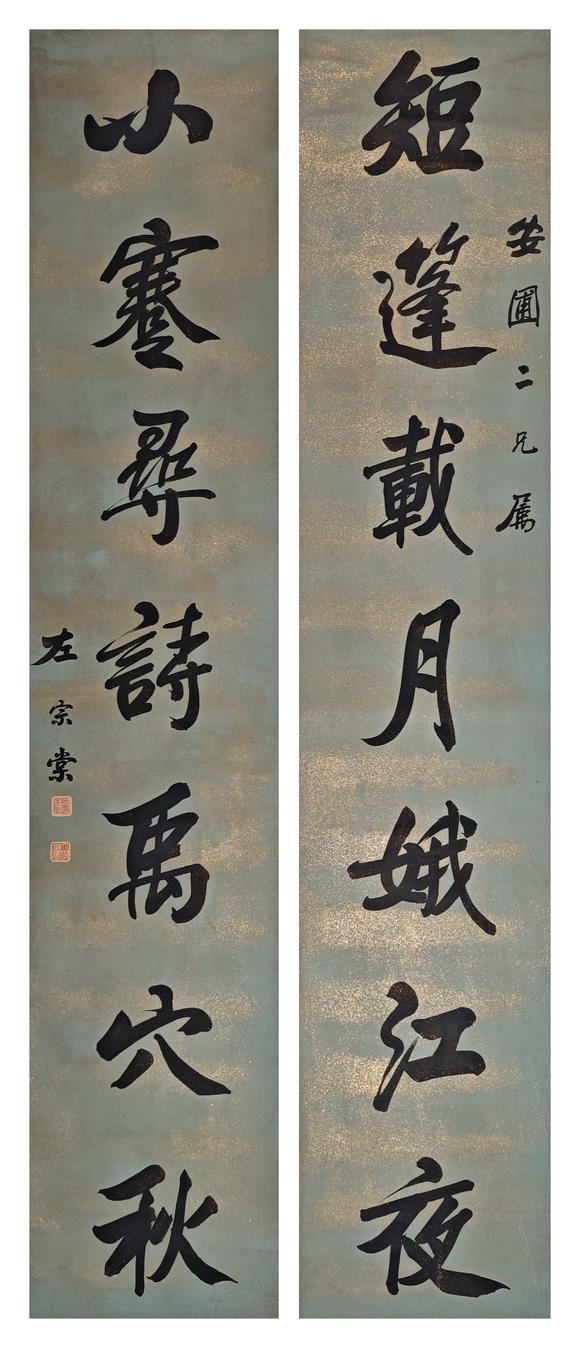 安圃二兄属
短篷載月娥江夜
小蹇尋詩禹穴秋
左宗棠